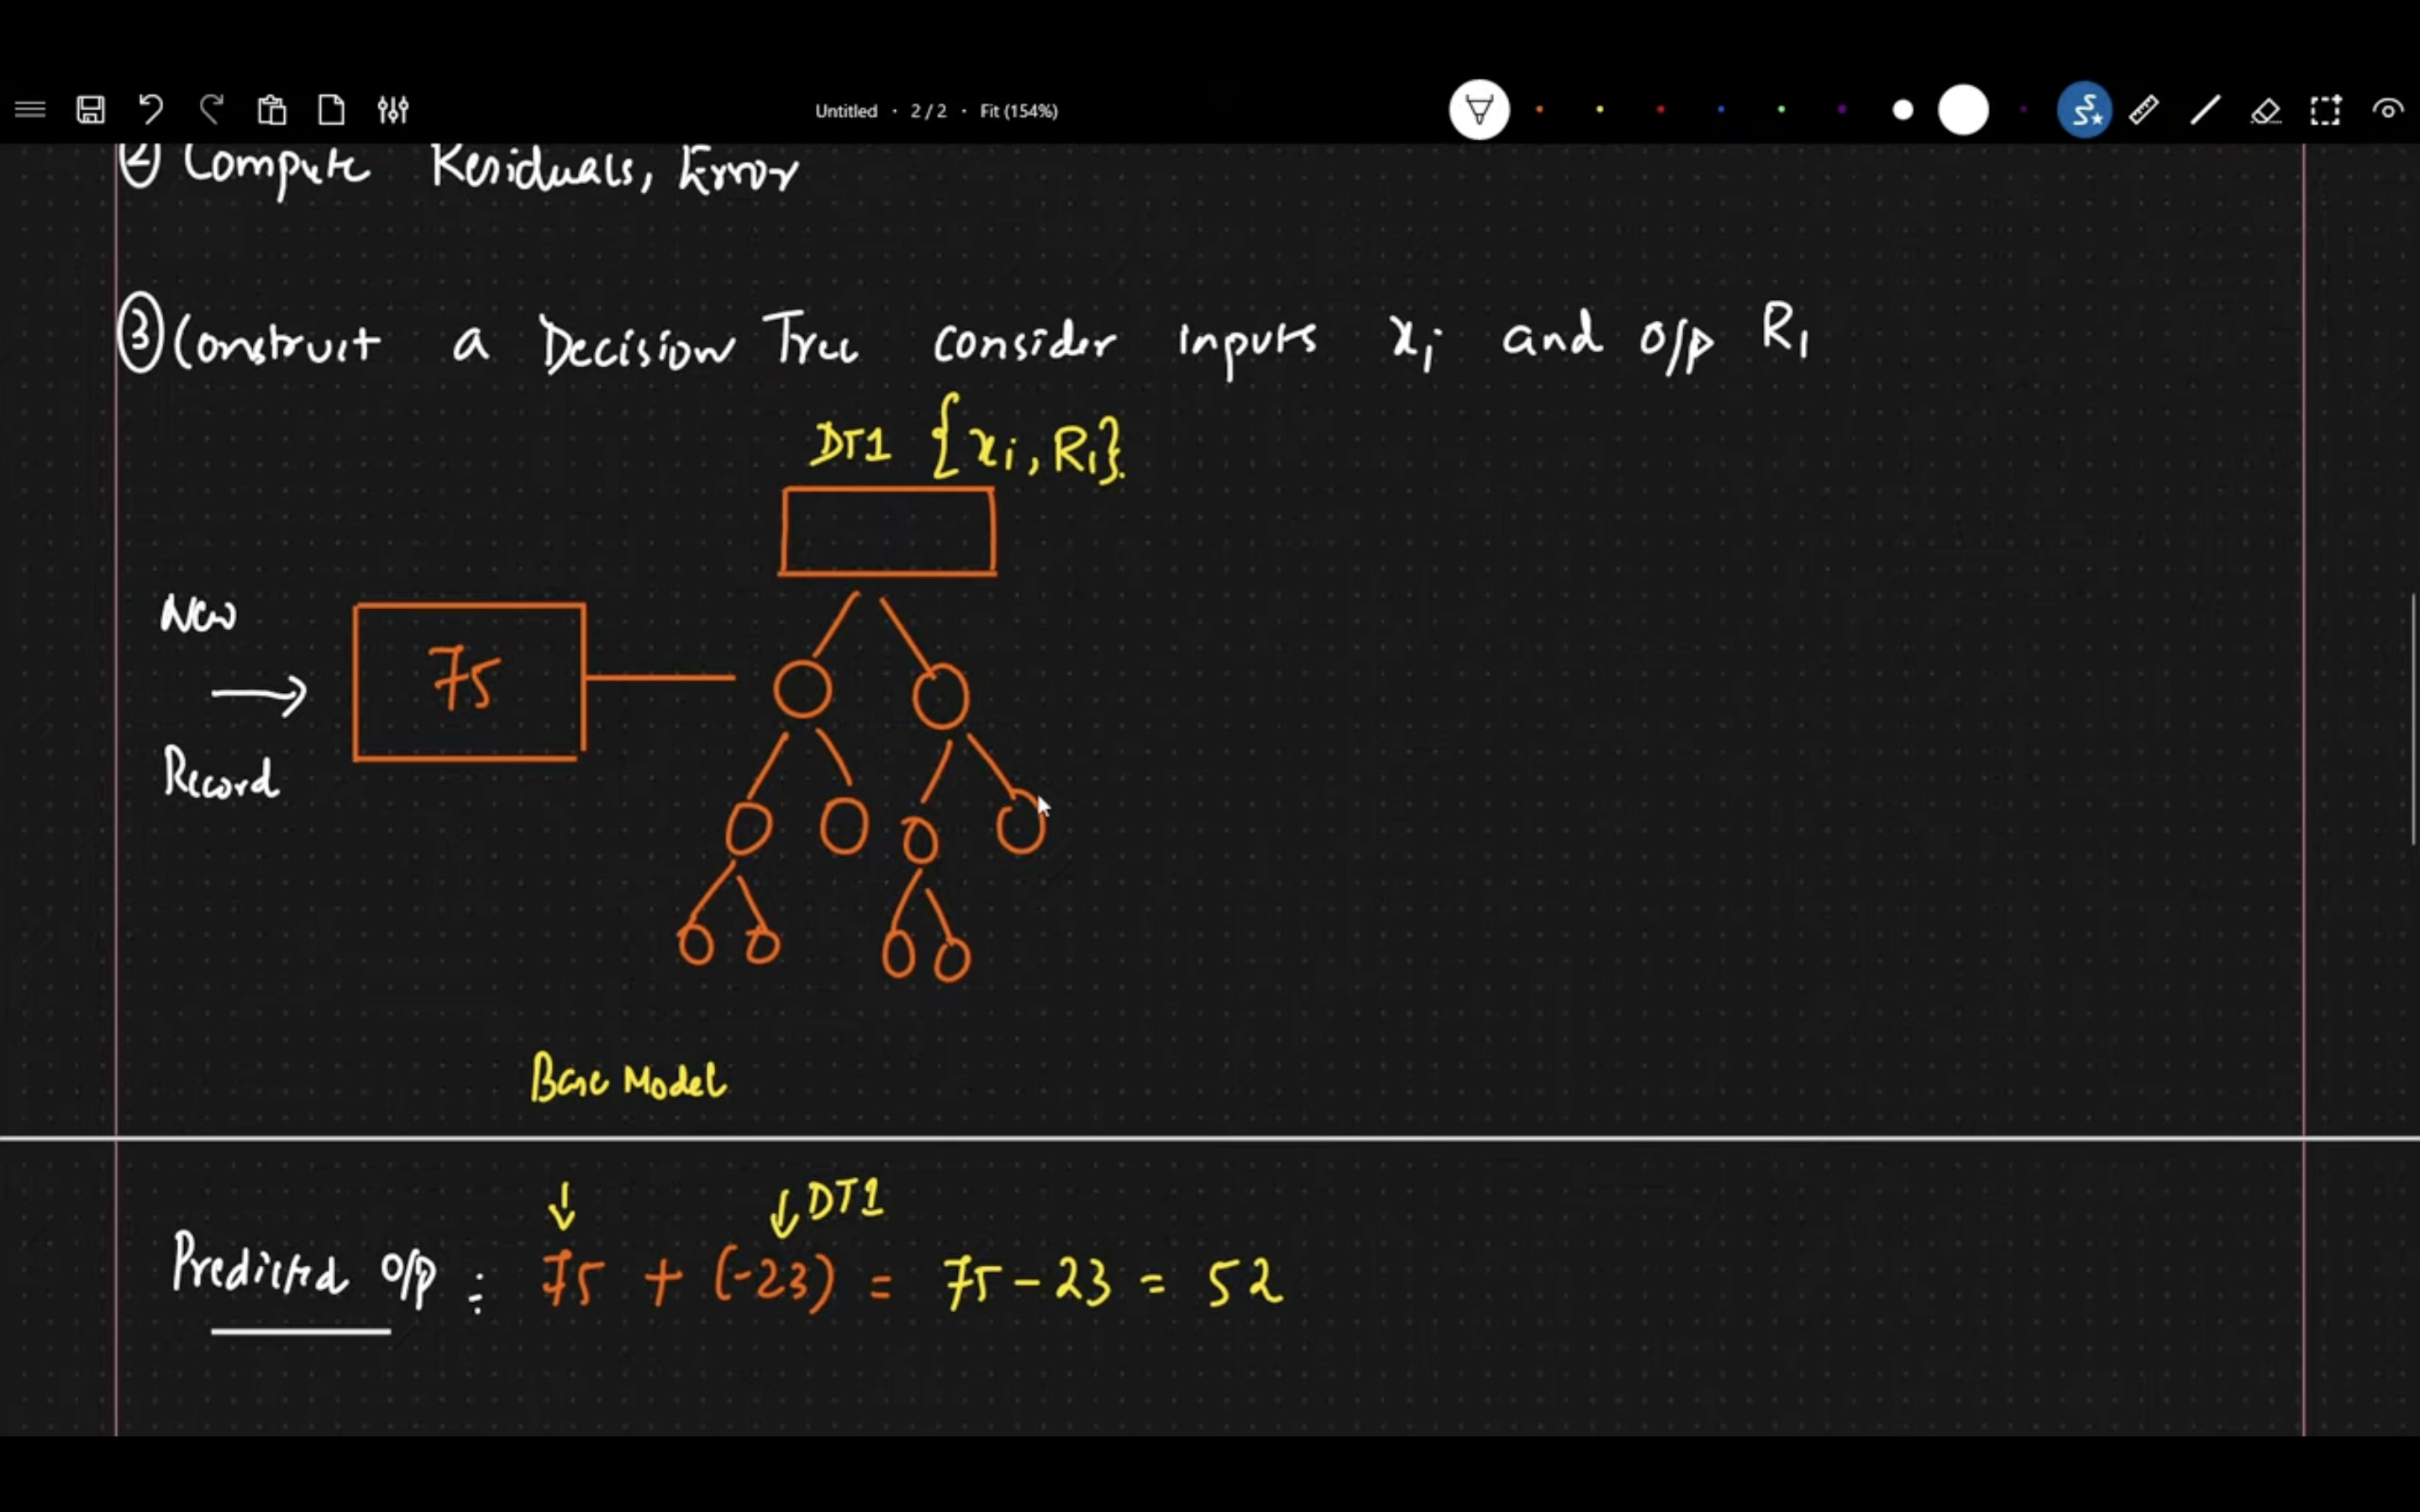 Untitled · 2 / 2 · Fit (154%)
② Compute Residuals, Error
③ Construct a Decision Tree consider inputs xi and o/p R1
DT1 {xi, R1}.
New
75
Record
Base Model
DT1
Predicted o/p : 75 + (-23) = 75 - 23 = 52